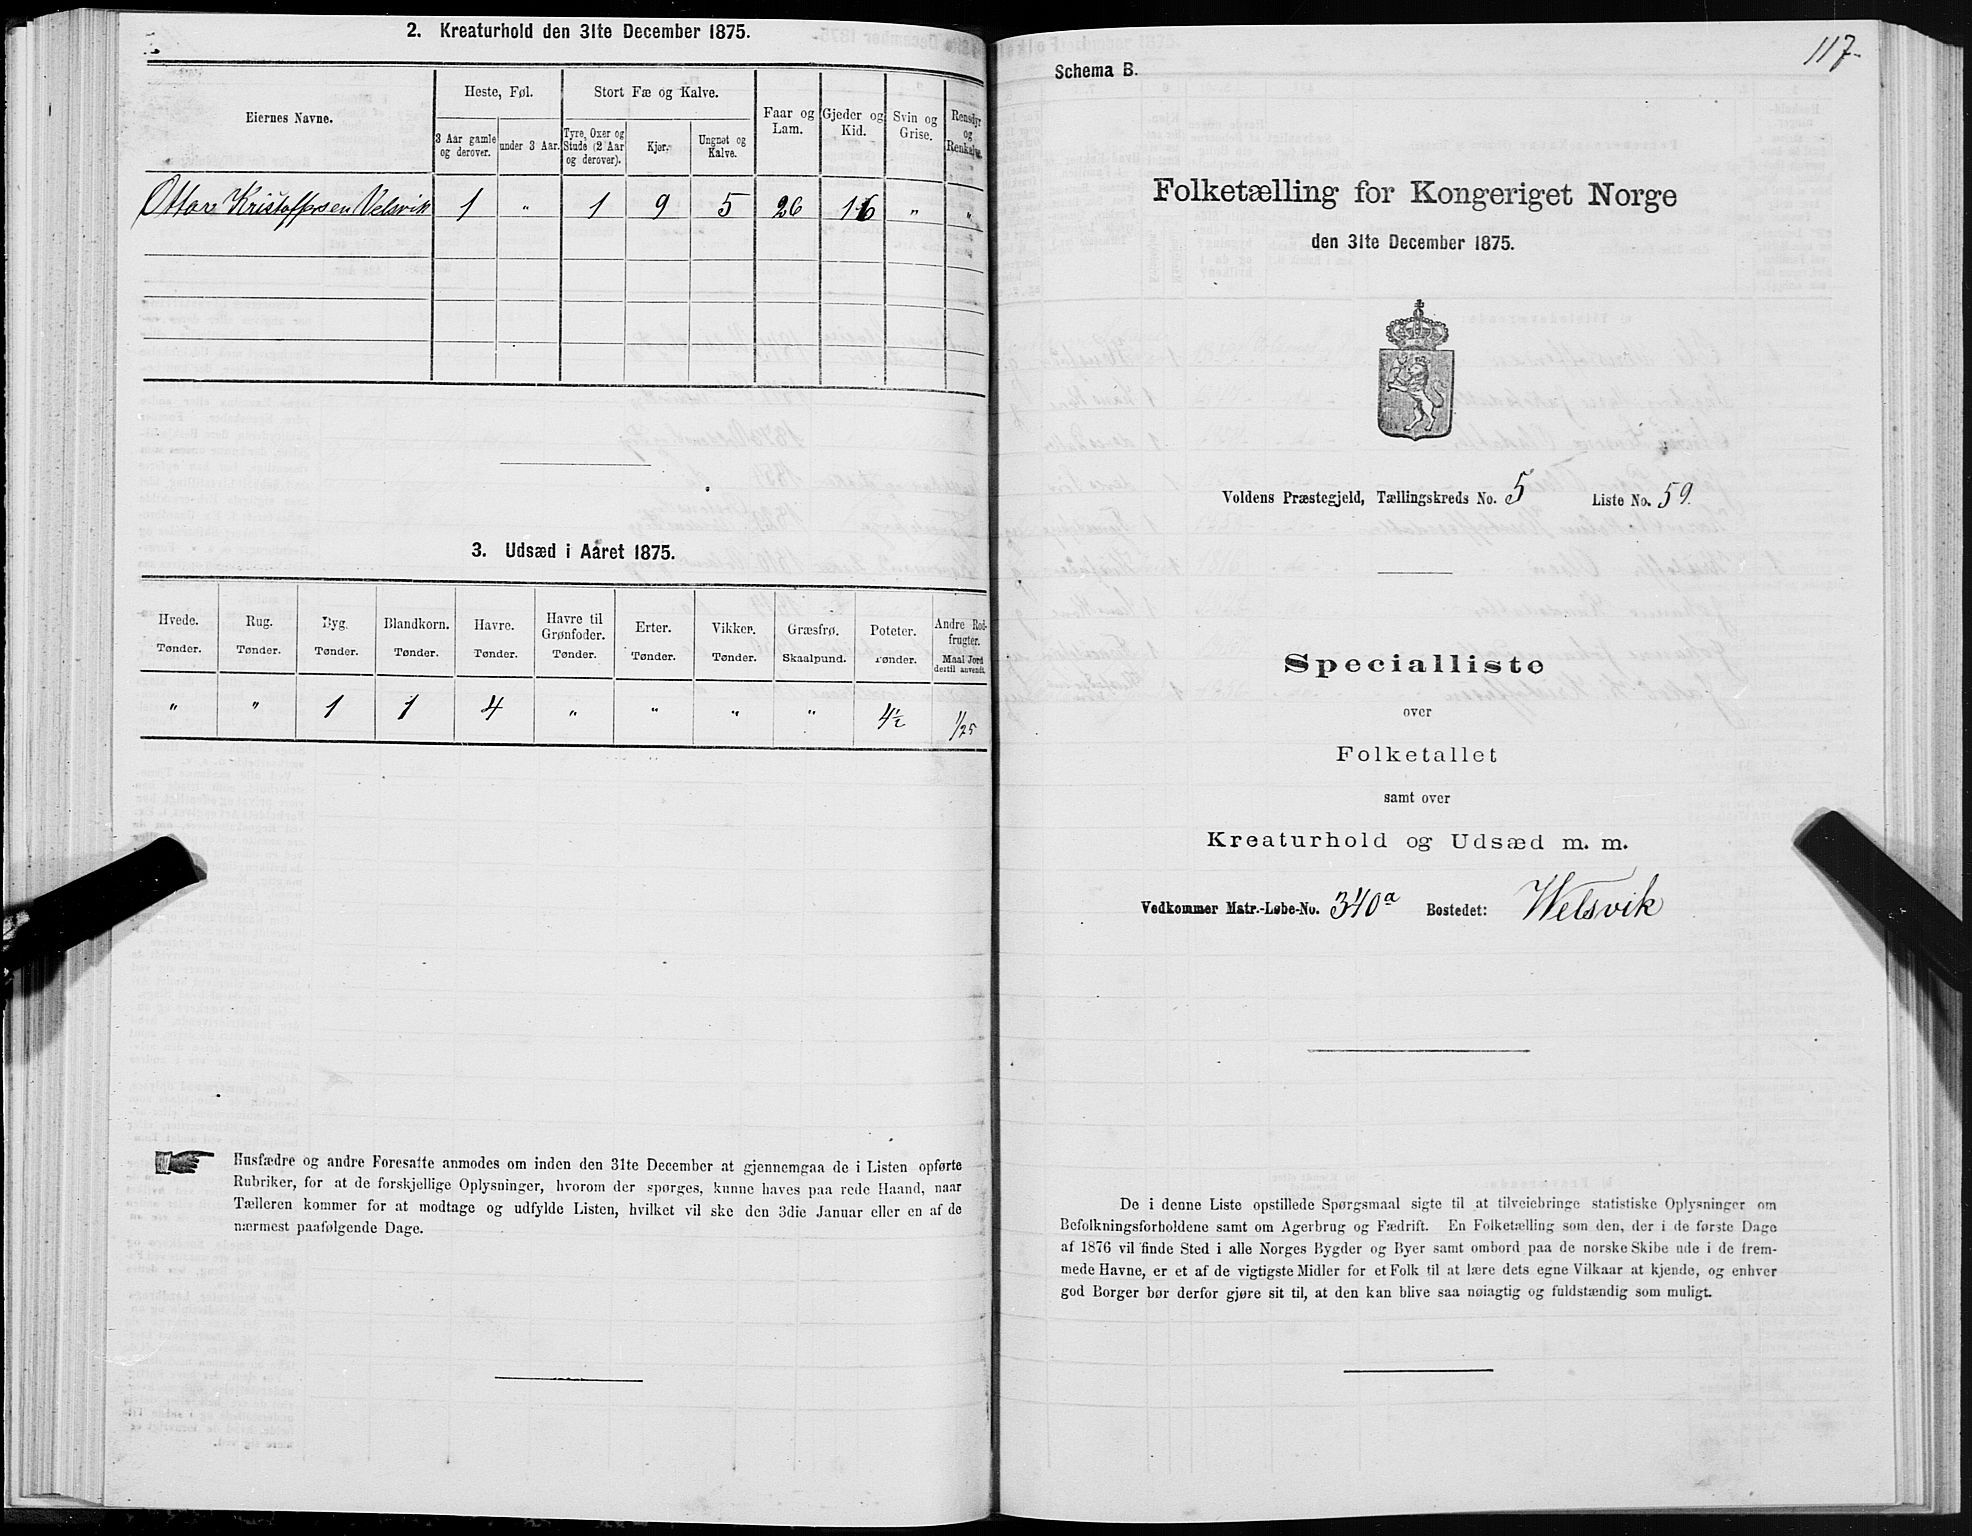 2. Kreaturhold den 31te December 1875.
Eiernes Navne.
Heste, Føl.
Stort Fæ og Kalve.
Faar og
Lam.
Gjeder og
Kid.
Svin og
Grise.
Rensdyr
og
Renkalve.
3 Aar gamle
og derover.
under 3 Aar.
Tyre, Oxer og
Stude (2 Aar
og derover).
Kjør.
Ungnøt og
Kalve.
Kristoffersen Velsvik 1 " 1 9 5 26 16 " "
3. Udsæd i Aaret 1875.
Hvede.
Tønder.
Rug.
Tønder.
Byg.
Tønder.
Blandkorn.
Tønder.
Havre.
Tønder.
Havre til
Grønfoder.
Tønder.
Erter.
Tønder.
Vikker.
Tønder.
Græsfrø.
Skaalpund.
Poteter.
Tønder.
Andre Rod-
frugter.
Maal Jord
dertil anvendt.
" " 1 1 4 " " " " 4½ 1/25
Husfædre og andre Foresatte anmodes om inden den 31te December at gjennemgaa de i Listen opførte
Rubriker, for at de forskjellige Oplysninger, hvorom der spørges, kunne haves paa rede Haand, naar
Tælleren kommer for at modtage og udfylde Listen, hvilket vil ske den 3die Januar eller en af de
nærmest paafølgende Dage.
117
Schema B.
Folketælling for Kongeriget Norge
den 31te December 1875.
Voldens Præstegjeld, Tællingskreds No. 5 Liste No. 59.
Specialliste
over
Folketallet
samt over
Kreaturhold og Udsæd m. m.
Vedkommer Matr.-Løbe-No. 340a Bostedet: Welsvik
De i denne Liste opstillede Spørgsmaal sigte til at tilveiebringe statistiske Oplysninger om
Befolkningsforholdene samt om Agerbrug og Fædrift. En Folketælling som den, der i de første Dage
af 1876 vil finde Sted i alle Norges Bygder og Byer samt ombord paa de norske Skibe ude i de frem-
mede Havne, er et af de vigtigste Midler for et Folk til at lære dets egne Vilkaar at kjende, og enhver
god Borger bør derfor gjøre sit til, at den kan blive saa nøiagtig og fuldstændig som muligt.